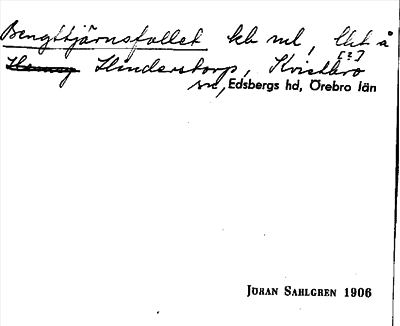 Bengttjärnsfallet kb ml, Utt å
Hinderstorp, Kvistbro
[?]
sn, Edsbergs hd, Örebro län
JÖRAN SAHLGREN 1906